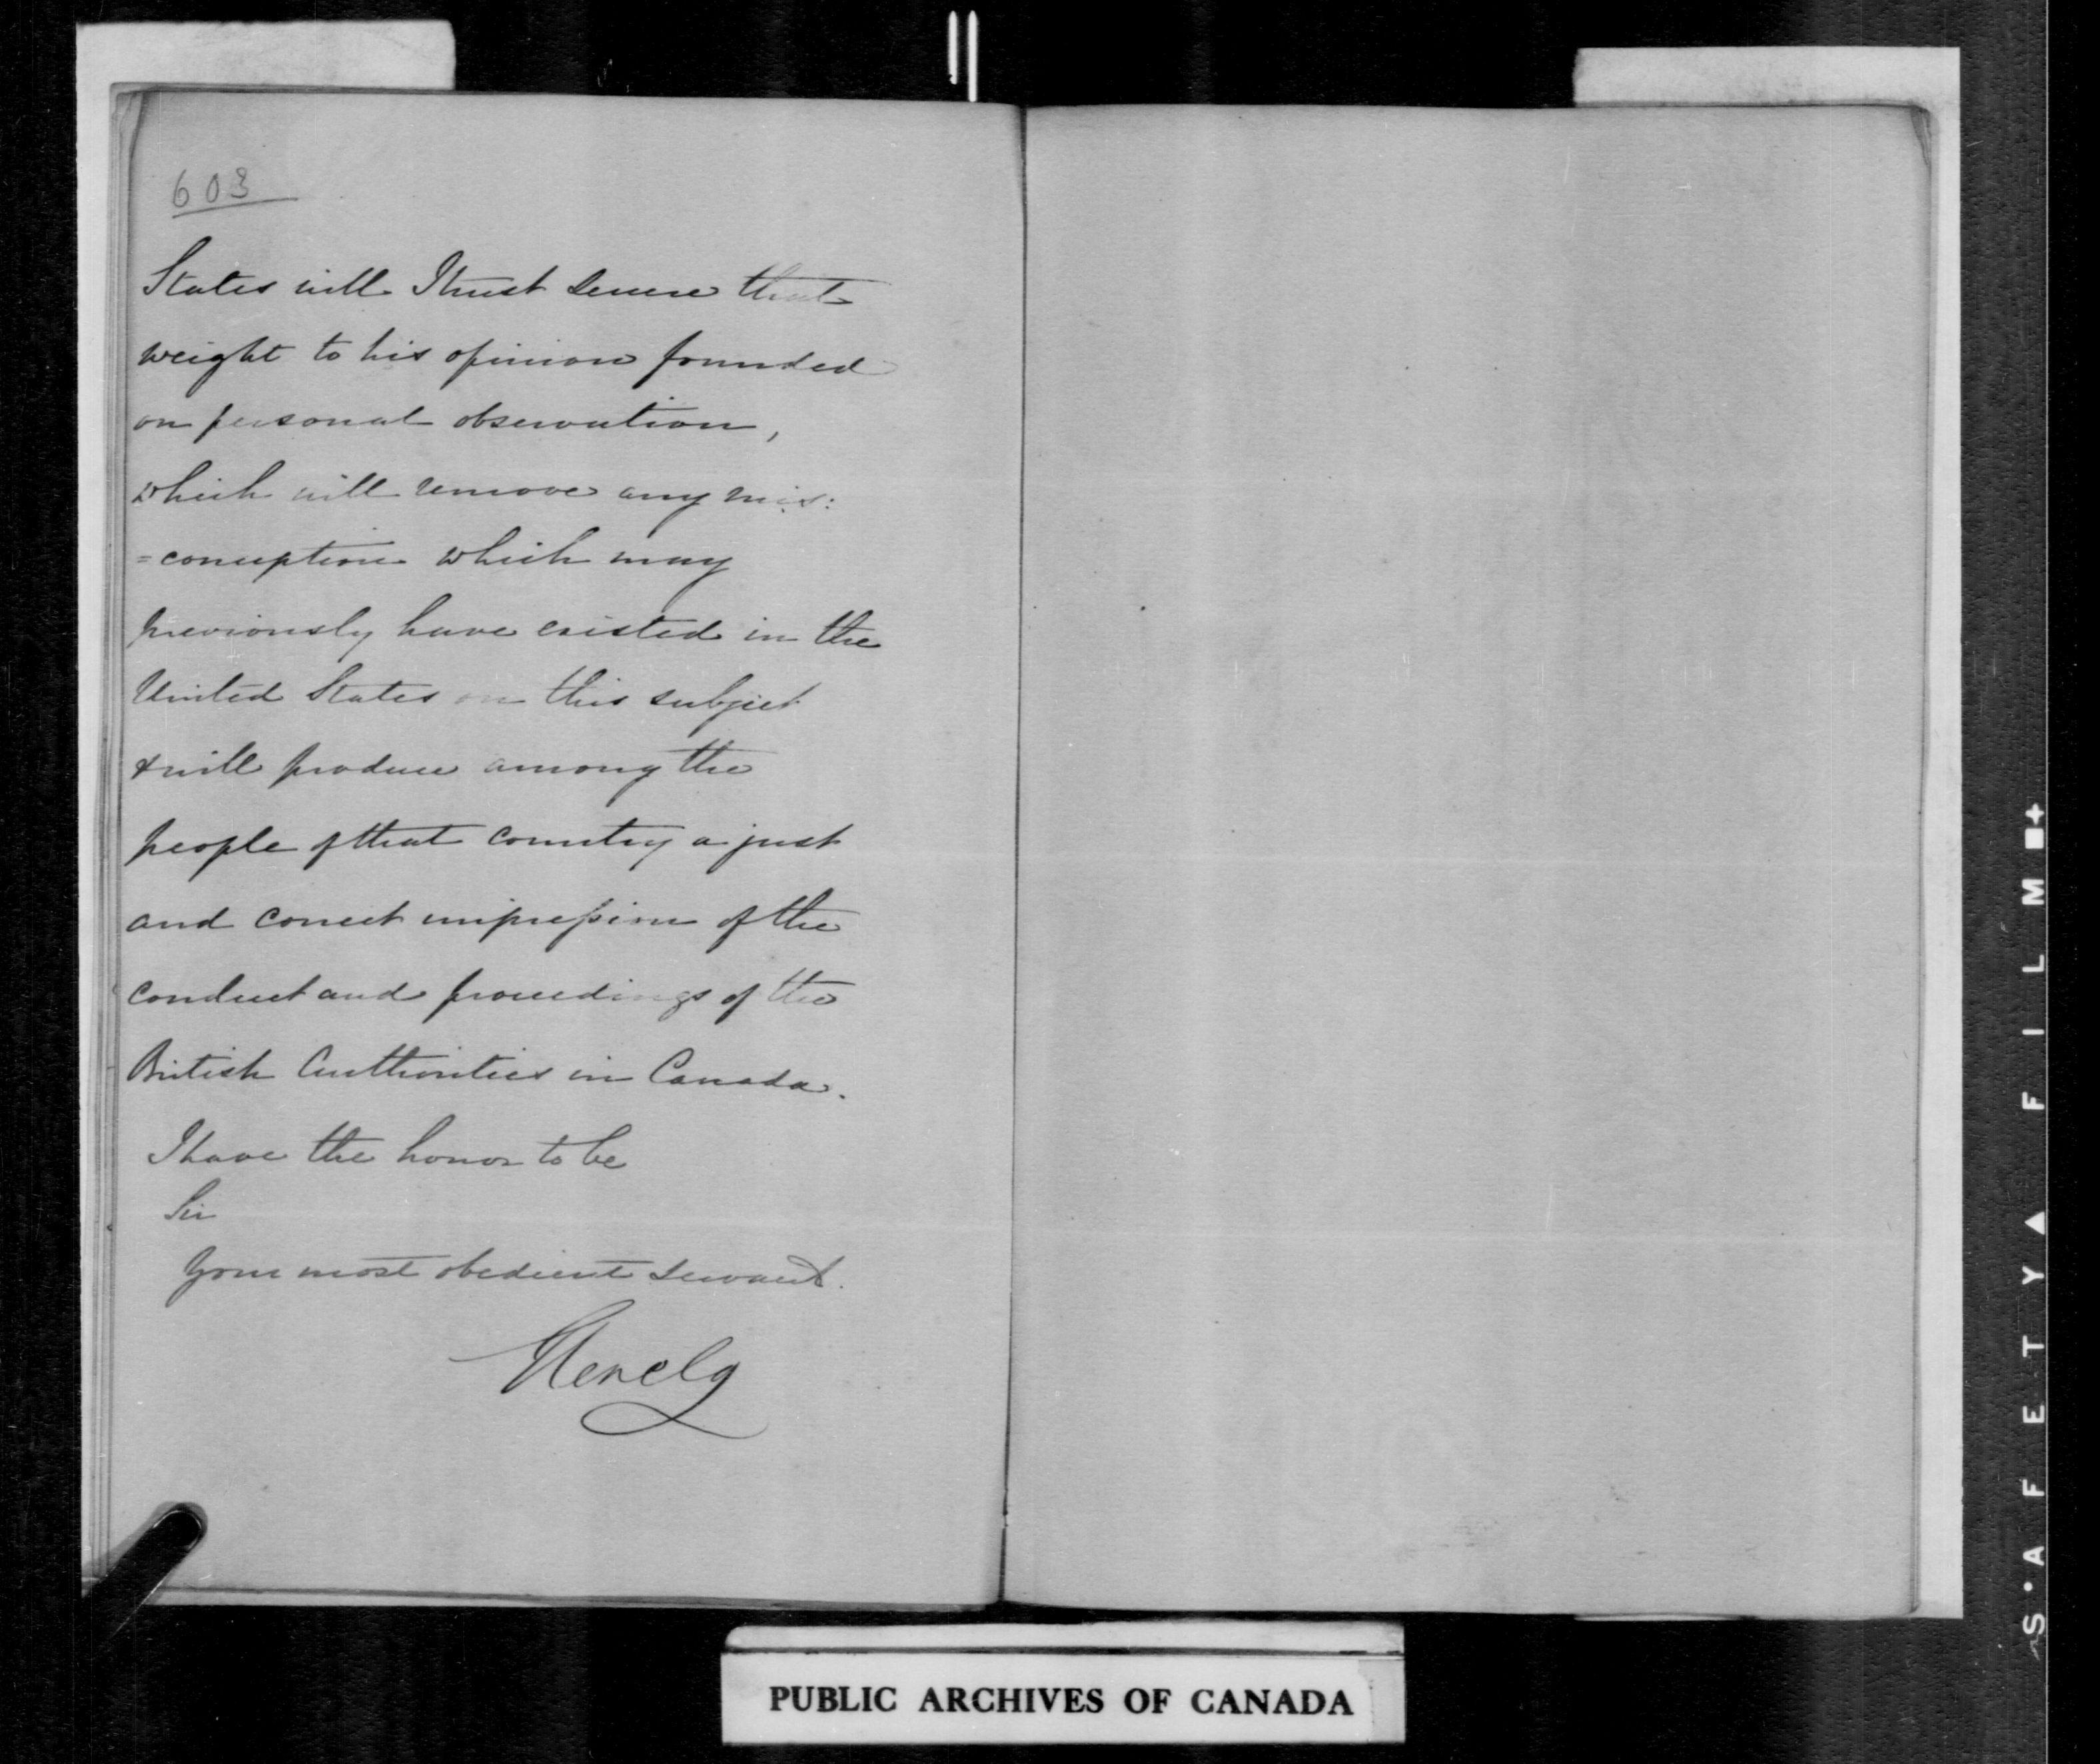 603
States will I trust secure that
weight to his opinion founded
on personal observation,
which will remove any mis:
=conception which may
previously have existed in the
United States on this subject
& will produce among the
people of that country a just
and correct impression of the
conduct and proceedings of the
British Authorities in Canada.
I have the honor to be
Sir
Your most obedient servant.
Glenelg
PUBLIC ARCHIVES OF CANADA
S·AFETY▲ FILM■+